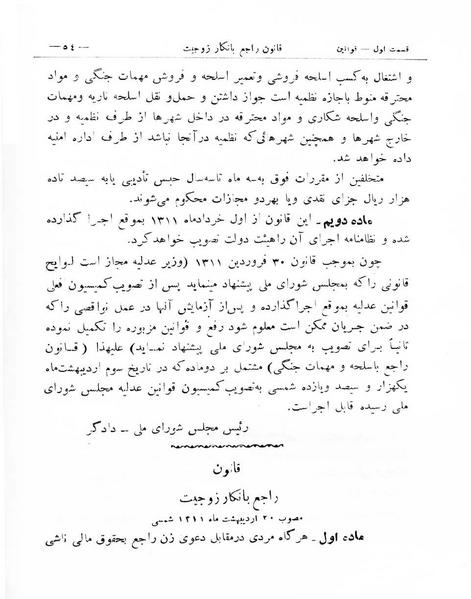 قسمت اول — قوانین
قانون راجع بانکار زوجیت
— ٥٤ —
و اشتغال به‌کسب اسلحه فروشی وتعمیر اسلحه و فروش مهمات جنگی و مواد
محترقه منوط باجازه نظمیه است جواز داشتن و حمل‌و نقل اسلحه ناریه ومهمات
جنگی واسلحه شکاری و مواد محترقه در داخل شهرها از طرف نظمیه و در
خارج شهرها و همچنین شهرهائی‌که نظمیه درآنجا نباشد از طرف اداره امنیه
داده خواهد شد.
متخلفین از مقررات فوق به‌سه ماه تاسه‌سال حبس تأدیبی یابه سیصد تاده
هزار ریال جزای نقدی ویا بهردو مجازات محکوم می‌شوند.
ماده دویم ـ این قانون از اول خردادماه ۱۳۱۱ بموقع اجرا گذارده
شده و نظامنامه اجرای آن راهیئت دولت تصویب خواهدکرد.
چون بموجب قانون ۳۰ فروردین ۱۳۱۱ (وزیر عدلیه مجاز است لوایح
قانونی راکه بمجلس شورای ملی پیشنهاد مینماید پس از تصویب‌کمیسیون فعلی
قوانین عدلیه بموقع اجراگذارده و پس‌از آزمایش آنها در عمل نواقصی راکه
در ضمن جریان ممکن است معلوم شود رفع و قوانین مزبوره را تکمیل نموده
ثانیاً برای تصویب به مجلس شورای ملی پیشنهاد نماید) علیهذا (قانون
راجع باسلحه و مهمات جنگی) مشتمل بر دوماده‌که در تاریخ سوم اردیبهشت‌ماه
یکهزار و سیصد ویازده شمسی به‌تصویب‌کمیسیون قوانین عدلیه مجلس شورای
ملی رسیده قابل اجراست.
رئیس مجلس شورای ملی ـ دادگر
قانون
راجع بانکار زوجیت
مصوب ۲۰ اردیبهشت ماه ۱۳۱۱ شمسی
ماده اول ـ هرگاه مردی درمقابل دعوی زن راجع بحقوق مالی ناشی